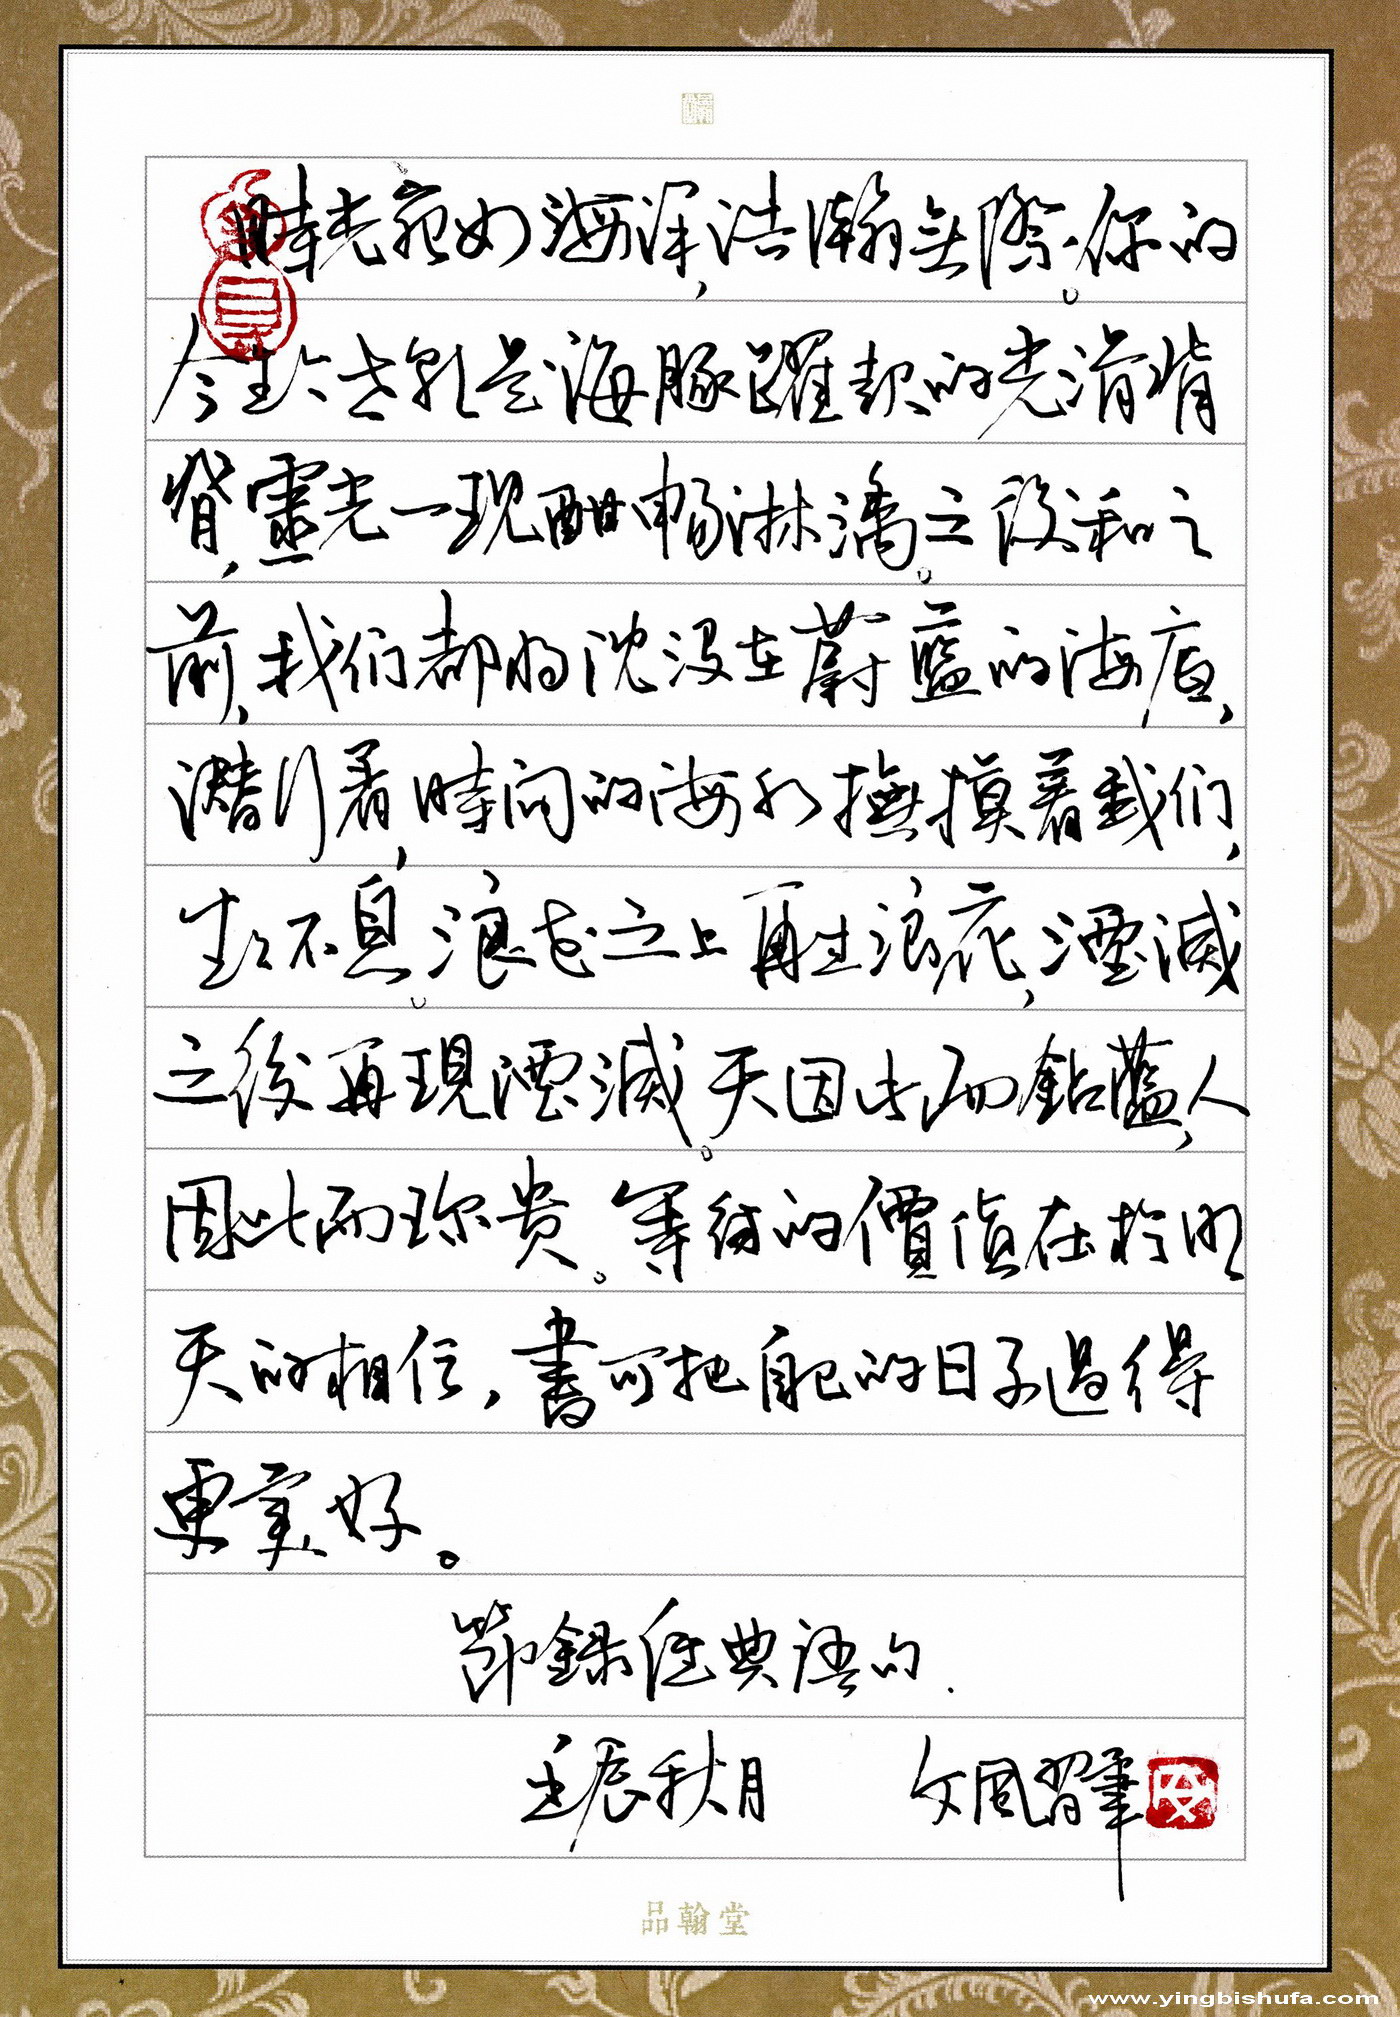 時光宛如海深，浩瀚無際。你的
今生今世乳是海豚躍起的光滑背
脊，靈光一現酣暢淋漓。之後和之
前，我们都将沈没在蔚藍的海底，
潛行着，時间的海水撫摸着我们，
生生不息。浪花之上再生浪花，湮滅
之後再現湮滅。天因此而鈷藍，人
因此而珍贵。等待的價值在於明
天的相信，書可把自己的日子過得
更美好。
節錄经典语句.
壬辰秋月 文風習筆
品翰堂
www.yingbishufa.com